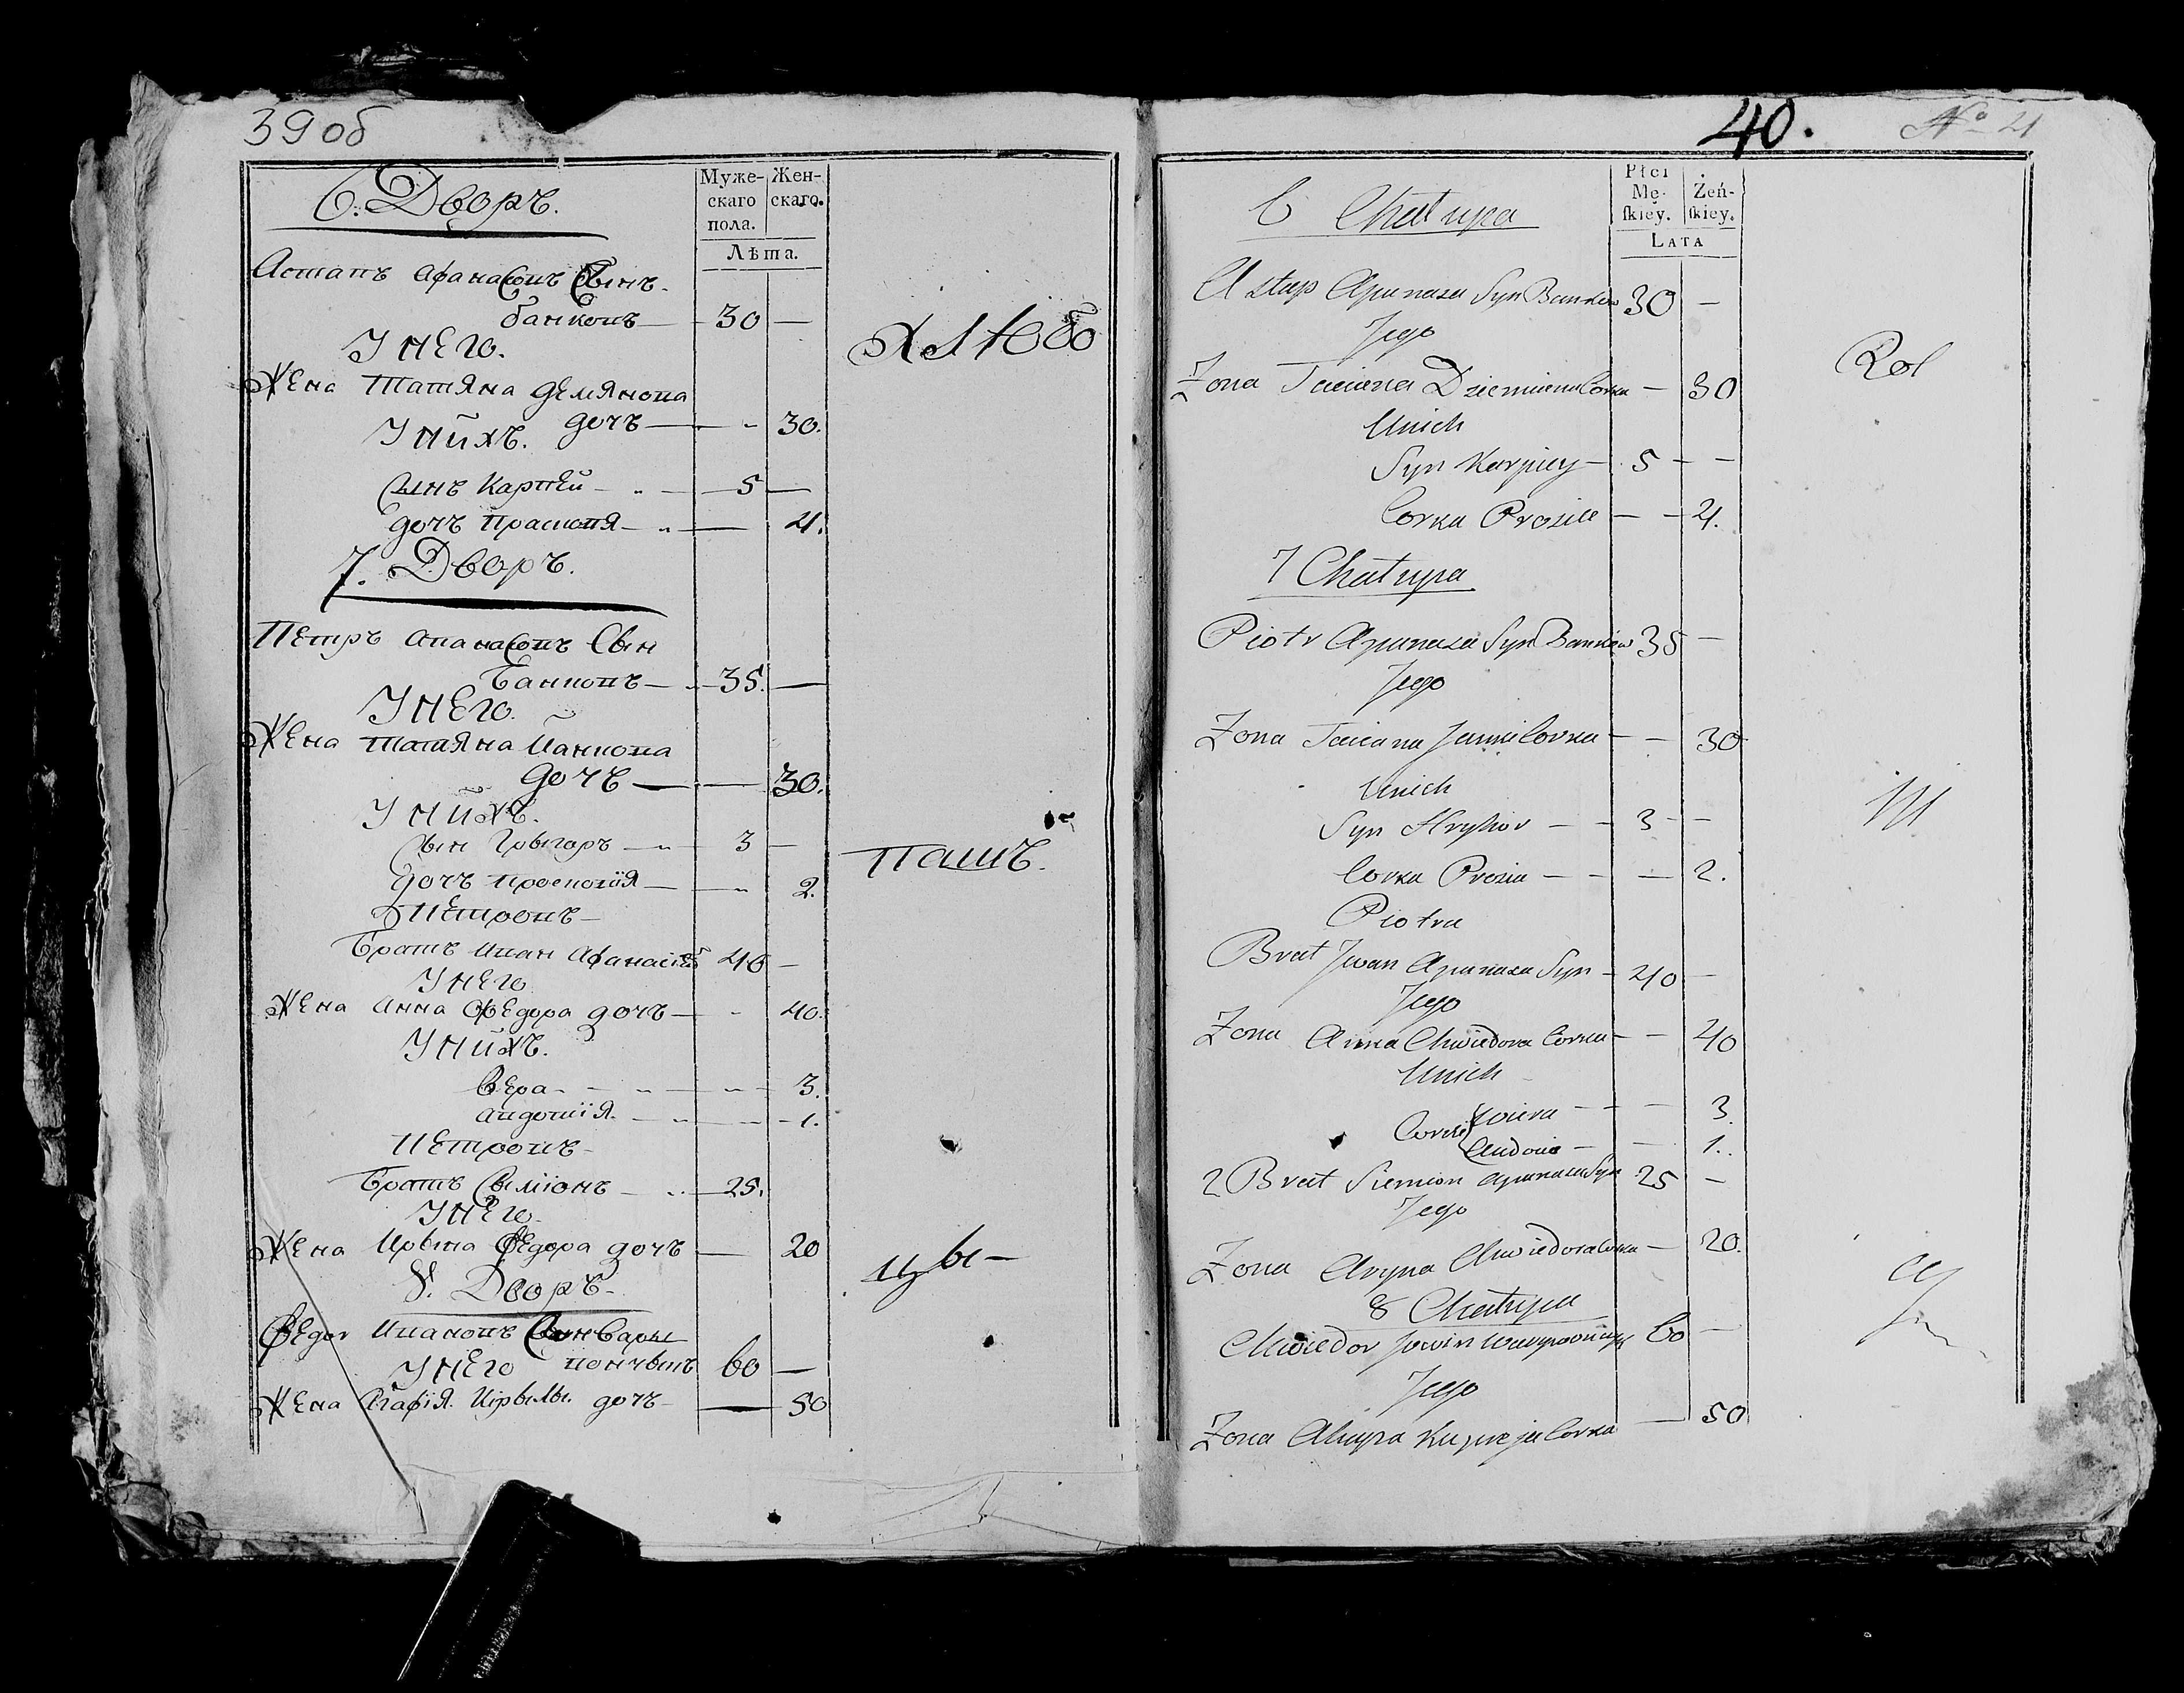 39 об
6. Дворъ.
Муже-
скаго
пола.
Жен-
скаго.
Лѣта.
Астапъ Афанасовъ Сынъ
банковъ — 30 —
У нЕго.
хлѣбо
ЖЕна татяна демянова
дочъ — 30.
У нийхъ.
Сынъ Карпей — 5 —
дочъ прасковя — 4.
7. Дворъ.
ПЕтръ апанасовъ Сын
Банковъ — 35. —
У нЕго.
ЖЕна татяна Ианкова
дочъ — 30.
У нийхъ.
Сын Грыгоръ — 3 —
пашъ.
дочъ — 2.
пЕтровъ —
Братъ иван Афанасiев 40 —
У нЕго
ЖЕна анна ФЕдора дочъ — 40.
У нийхъ.
вЕра — 3.
авдотiя — 1.
пЕтровъ —
Братъ Сымiонъ — 25.
У нЕго.
ЖЕна Ирына ФЕдора дочъ — 20
цы —
8. Дворъ.
ФЕдор Ивановъ Сын
У нЕго 60 —
ЖЕна Агафiя дочъ — 50
40.
№ 21
6 Chałupa
Płci
Mę-
ſkiey.
Żeń-
ſkiey.
LATA
Astap Apanasa Syn Bankow 30 —
Jego
Rol
Zona Taciana Dziemiana Corka — 30
Unich
Syn Karpiey — 5 — —
Corka Prosia — — 4.
7 Chałupa
Piotr Apanasa Syn Bankow 35 —
Jego
Zona Taciana Janki Corka — — 30
Unich
Syn Hryhor — — 3 — —
ni
Corka Prosia — — — 2.
Piotra
Brat Jwan Apanasa Syn — 40 —
Jego
Zona Anna Chwiedora Corka — — 40
Unich
Corki { Wiera — — — 3.
Audocia — — 1.
2 Brat Siemion Apanasa Syn 25 —
Jego
Zona Aryna Chwiedora Corka — 20.
cy
8 Chałupa
Chwiedor Jwan 60 —
Jego
Zona Ahapa Corka — 50